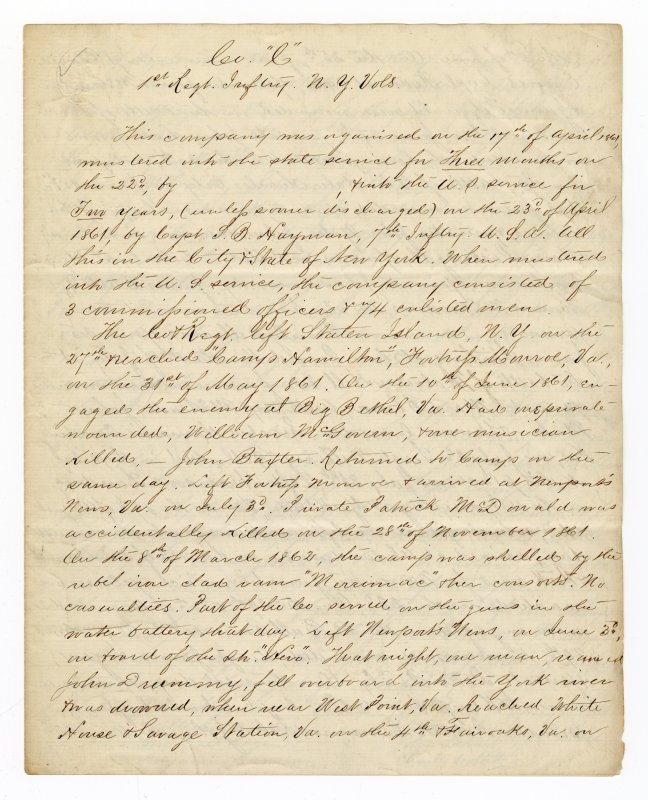 Co. "C"
1st Regt. Inftry. N. Y. Vols.
This company was organised on the 17th of April 1861,
mustered into the state service for Three months on
the 22d, by & into the U. S. service for
Two years, (unless sooner discharged) on the 23d of April
1861, by Capt. S. B. Hayman, 7th Inftry. U. S. A. All
this in the City & State of New York. When mustered
into the U. S. service, the company consisted of
3 commissioned officers & 74 enlisted men.
The Co & Regt. left Staten Island, N. Y. on the
27th & reached "Camp Hamilton", Fortress Monroe, Va.,
on the 31st of May 1861. On the 10th of June 1861, en-
gaged the enemy at Big Bethel, Va. Had one private
wounded, William McGovern, & one musician
killed, — John Baxter. Returned to Camp on the
same day. Left Fortress Monroe & arrived at Newport's
News, Va. on July 3d. Private Patrick McDonald was
accidentally killed on the 28th of November 1861.
On the 8th of March 1862, the camp was shelled by the
rebel iron clad ram "Merrimac" & her consorts. No
casualties. Part of the Co served on the guns in the
water battery that day. Left Newport's News, on June 3d,
on board of the Str. "Hero". That night, one man, named
John Drummy, fell overboard into the York river
& was drowned, when near West Point, Va. Reached White
House & Savage Station, Va. on the 4th & Fairoaks, Va. on